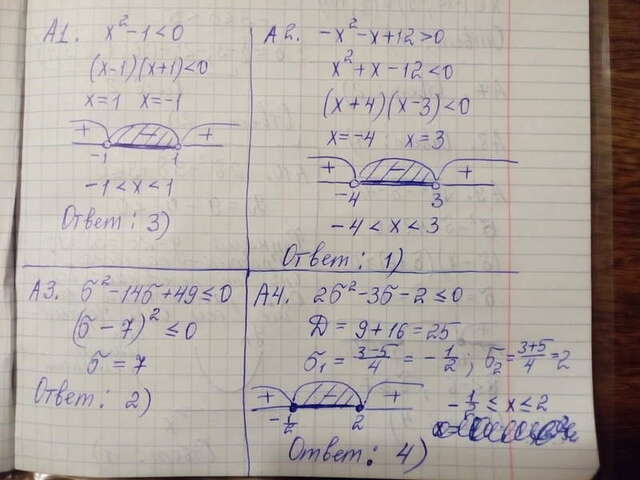 A1. x² - 1 < 0
(x-1)(x+1) < 0
x = 1 x = -1
+ - +
-1 1
-1 < x < 1
Ответ: 3)
A2. -x² - x + 12 > 0
x² + x - 12 < 0
(x+4)(x-3) < 0
x = -4 x = 3
+ - +
-4 3
-4 < x < 3
Ответ: 1)
A3. б² - 14б + 49 ≤ 0
(б - 7)² ≤ 0
б = 7
Ответ: 2)
A4. 2б² - 3б - 2 ≤ 0
D = 9 + 16 = 25
б₁ = (3-5)/4 = -1/2 ; б₂ = (3+5)/4 = 2
+ - +
-1/2 2
-1/2 ≤ x ≤ 2
Ответ: 4)